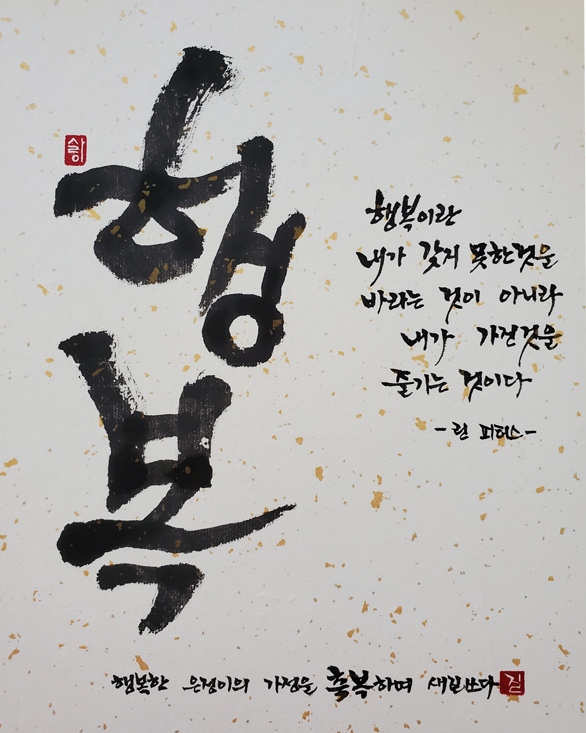 행복
행복이란
내가 갖지 못한것을
바라는 것이 아니라
내가 가진것을
즐기는 것이다
-린 피터스-
행복한 은정이의 가정을 축복하며 새길쓰다